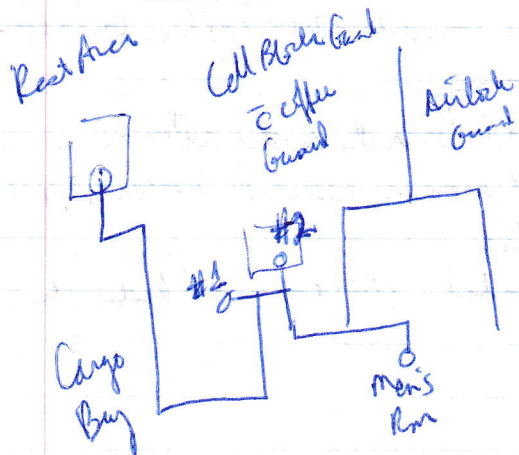 Rest Area
Cell Block Guard
Coffee
Guard
Airlock
Guard
#2
#1
Cargo
Bay
Men's
Rm